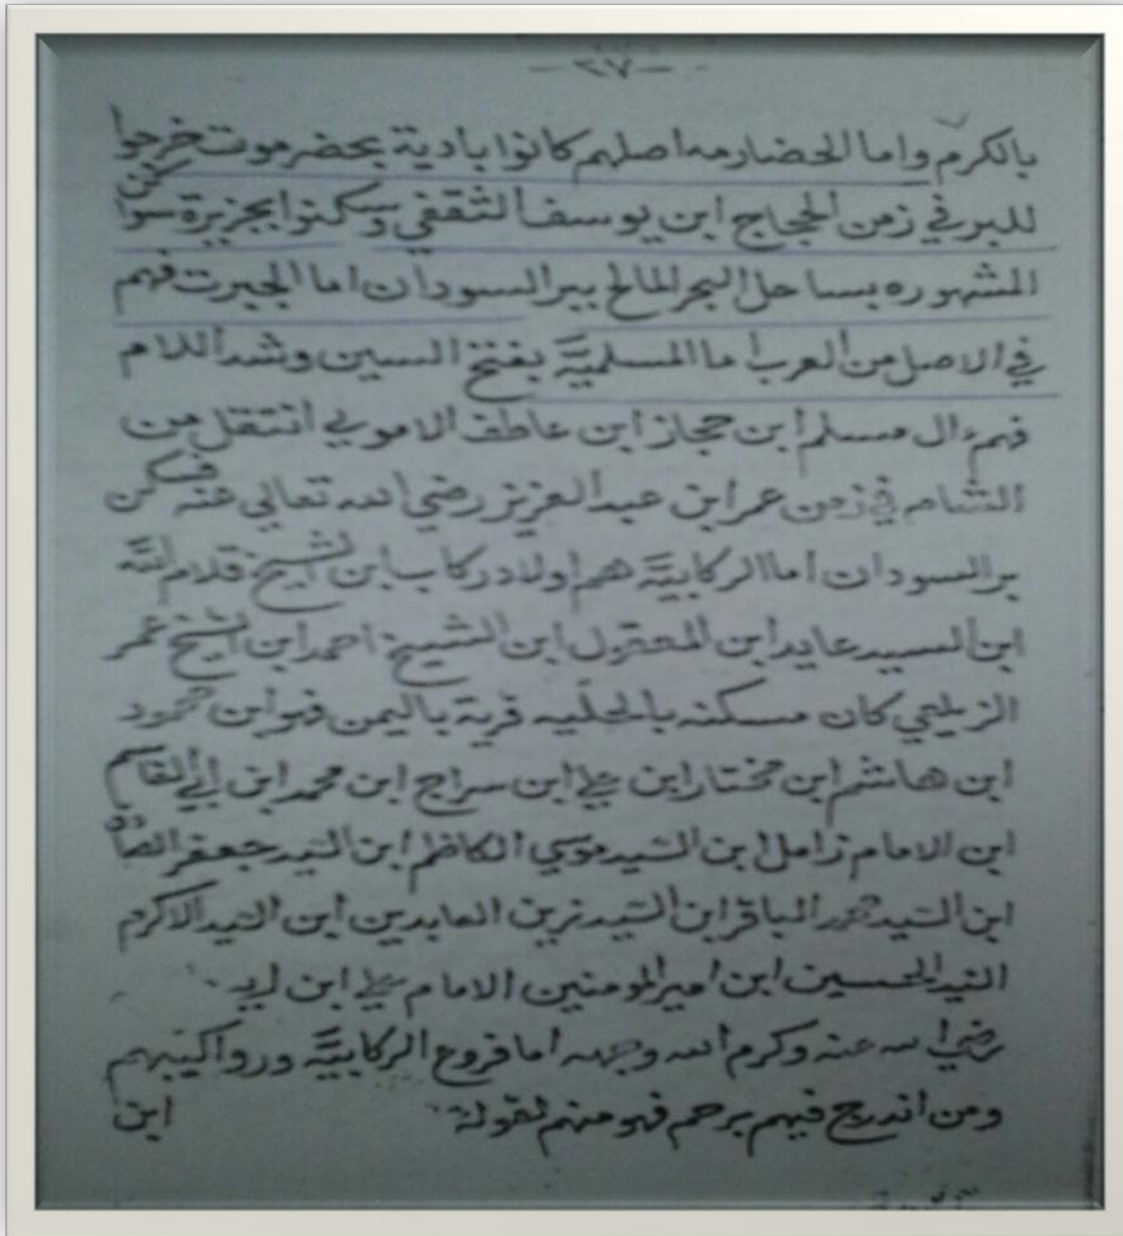 - ٢٧ -
بالكرم واما الحضارمه اصلهم كانوا بادية بحضرموت خرجوا
للبر في زمن الحجاج ابن يوسف الثقفي وسكنوا بجزيرة سواكن
المشهوره بساحل البحر المالح ببر السودان اما الجبرت فهم
في الاصل من العرب اما المسلميَّة بفتح السين وشد اللام
فهم ال مسلم ابن حجاز ابن عاطف الاموي انتقل من
الشام في زمن عمر ابن عبد العزيز رضي الله تعالى عنه فسكن
بر السودان اما الركابيَّة هم اولاد ركاب ابن الشيخ غلام الله
ابن السيد عايد ابن المقبول ابن الشيخ احمد ابن الشيخ عمر
الزيلعي كان مسكنه بالحليه قرية باليمن فهو ابن محمود
ابن هاشم ابن مختار ابن علي ابن سراج ابن محمد ابن ابي القاسم
ابن الامام زامل ابن السيد موسي الكاظم ابن السيد جعفر الصادق
ابن السيد محمد الباقر ابن السيد زين العابدين ابن السيد الاكرم
السيد الحسين ابن امير المومنين الامام علي ابن
رضي الله عنه وكرم الله وجهه اما فروع الركابيَّة ورواكيبهم
ومن اندرج فيهم برحم فهو منهم لقوله
ابن